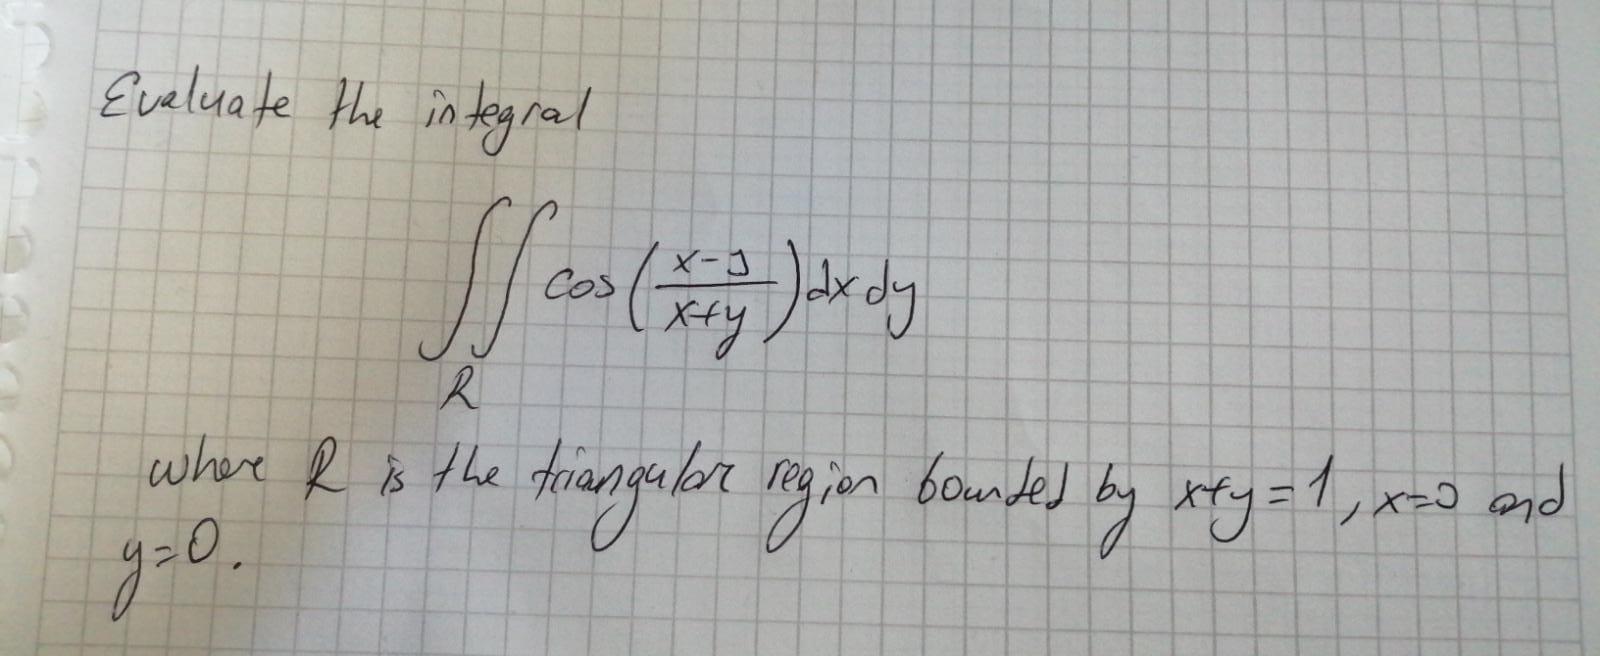 Evaluate the integral
∬_R cos((x-y)/(x+y)) dx dy
where R is the triangular region bounded by x+y=1, x=0 and
y=0.